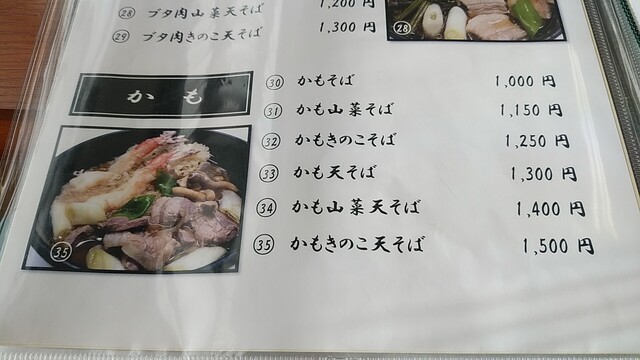 ㉘ ブタ肉山菜天そば 1,200 円
㉙ ブタ肉きのこ天そば 1,300 円
㉘
かも
㉚ かもそば 1,000 円
㉛ かも山菜そば 1,150 円
㉜ かもきのこそば 1,250 円
㉝ かも天そば 1,300 円
㉞ かも山菜天そば 1,400 円
㉟ かもきのこ天そば 1,500 円
㉟